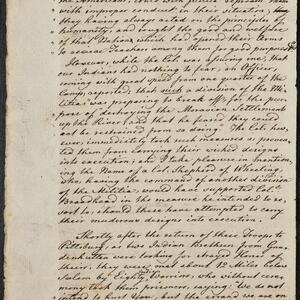 the Americans, could never reproach them
with improper conduct in their situation; but
they having always acted on the principles of
humanity, and sought the good and welfare
of the Indians which had spared their Arms
to receive Teachers among them for good purposes.
However, while the Col. was assuring me, that
our Indians had nothing to fear, an Officer,
coming with great speed from one quarter of the
Camp, reported, that such a division of the Mi-
litia was preparing to break off for the pur-
pose of destroying the Moravian Settlements
up the River, and that he feared they could
not be restrained from so doing. The Col. how-
ever, immediately took such measures as preven-
ted them from carrying their wicked designs
into execution; and I take pleasure in mention-
ing the Name of Col. Shepherd of Wheeling,
who, having the command of another division
of the Militia, would have supported Col.
Broadhead in the measure he intended to re-
sort to, should these have attempted to carry
their murderous designs into execution.
Shortly after the return of these Troops to
Pittsburg, as two Indian Brethren from Gna-
denhutten were looking for strayed Horses of
theirs, they were, about 12 Miles below
Salem by Eighty Warriors, who without cere-
mony took them prisoners, saying: We do not
intend to hurt You, but the